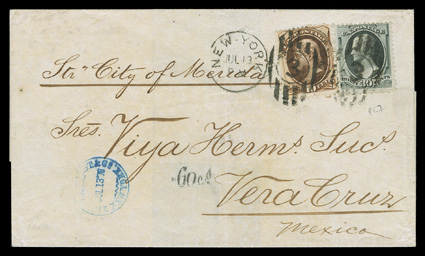 NEW-YORK
JUL 13
Str "City of Merida"
Sres. Viya Hermos Sucs.
60cs
Vera Cruz
Mexico